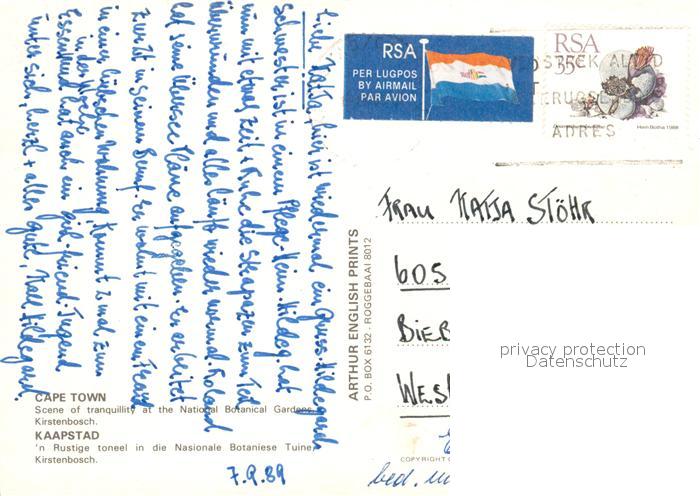 Liebe Katja, hier ist wieder mal ein Gruss. Hildegards
Schwester ist in einem Pflege-Heim. Hildeg. hat
nun mit etwas Zeit + Ruhe die Strapazen zum Teil
überwunden und alles läuft wieder normal. Roland
hat seine Übersee Pläne aufgegeben. Er arbeitet
zur Zt in seinem Beruf. Er wohnt mit ein. Freund
in einer hübschen Wohnung, kommt 2 mal zum
in der Woche
Essen und hat auch ein girl-friend. Jugend
unter sich, herzl + alles gute, Hildegard.
7.9.89
CAPE TOWN
Scene of tranquillity at the National Botanical Gardens,
Kirstenbosch.
KAAPSTAD
'n Rustige toneel in die Nasionale Botaniese Tuine,
Kirstenbosch.
ARTHUR ENGLISH PRINTS
P.O. BOX 6132 · ROGGEBAAI 8012
RSA
PER LUGPOS
BY AIRMAIL
PAR AVION
RSA
35c
Hein Botha 1988
ALTYD
ADRES
FRAU KATJA STÖHR
605
BIE
WES
privacy protection
Datenschutz
COPYRIGHT
bed.